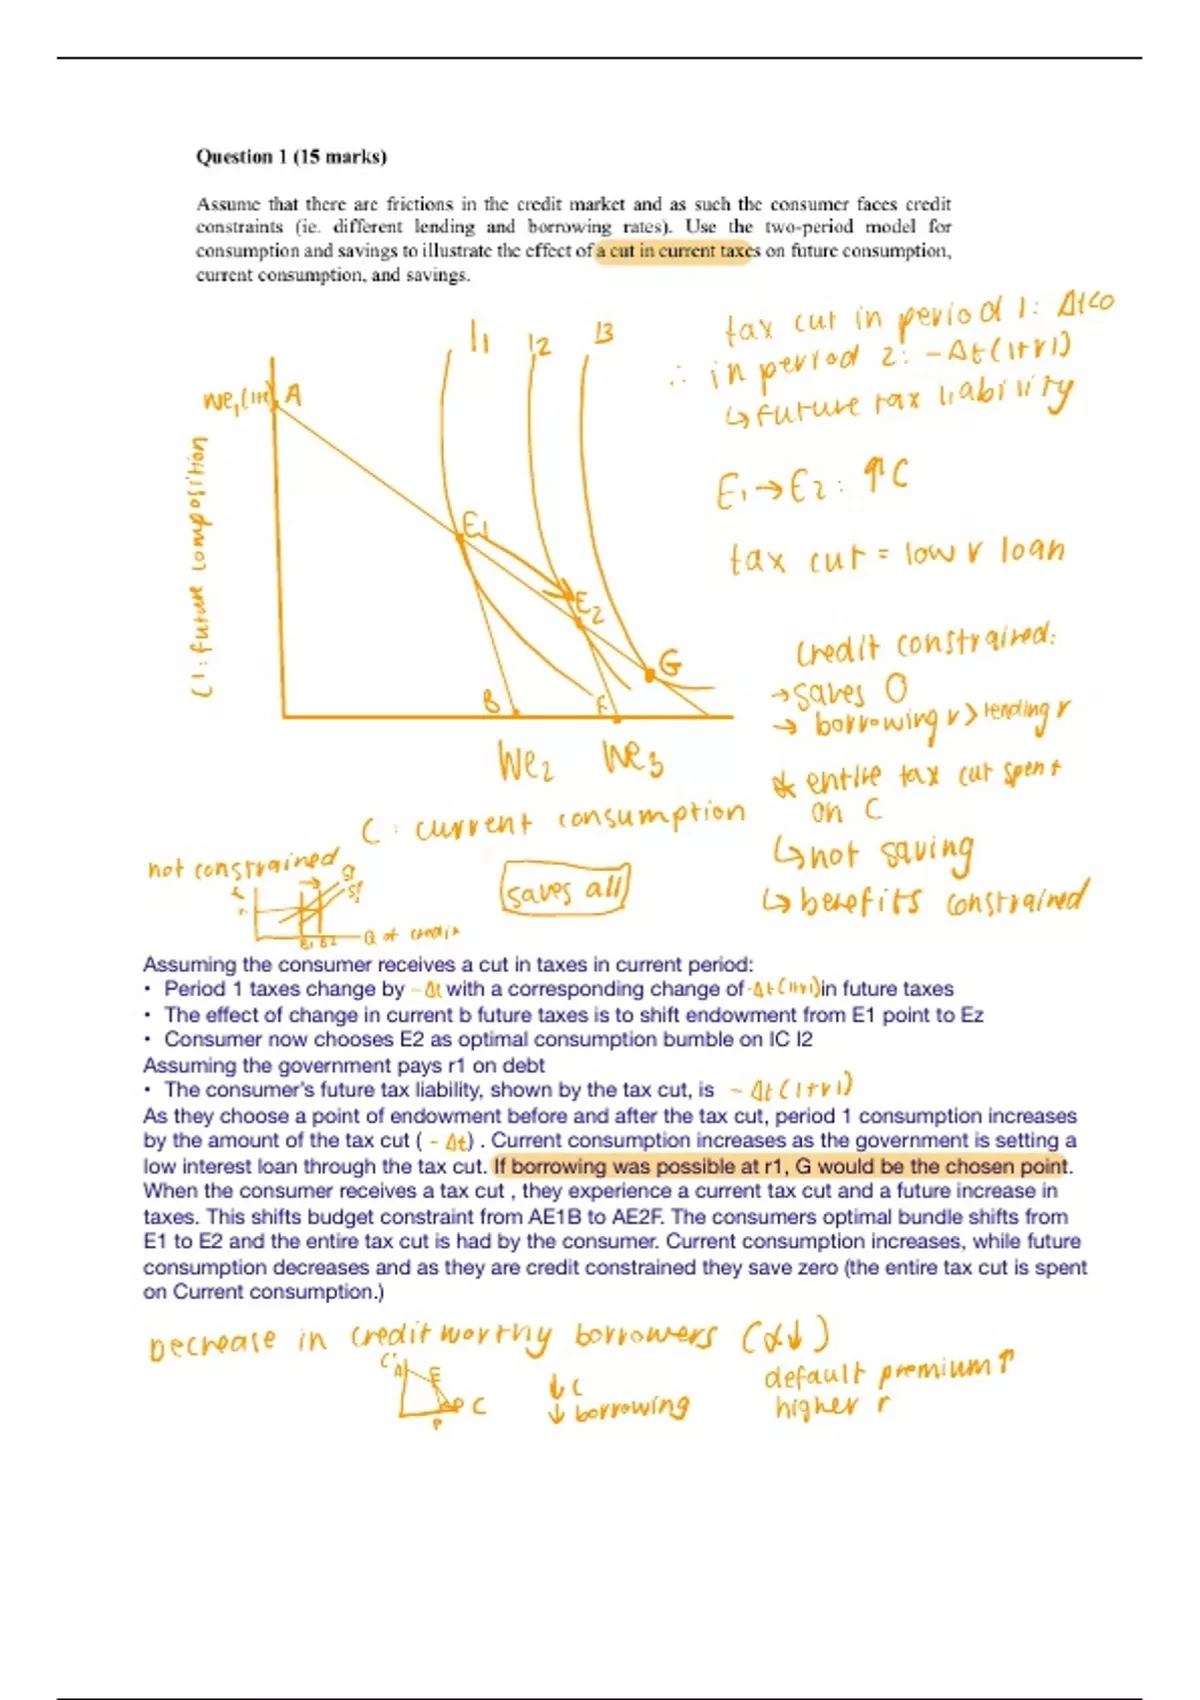 Question 1 (15 marks)
Assume that there are frictions in the credit market and as such the consumer faces credit
constraints (ie. different lending and borrowing rates). Use the two-period model for
consumption and savings to illustrate the effect of a cut in current taxes on future consumption,
current consumption, and savings.
tax cut in period 1: Δt<0
∴ in period 2: -Δt(1+r1)
↳ future tax liability
I1
I2
I3
A
C1: future composition
E1→E2: ↑C
E1
tax cut = low r loan
E2
G
credit constrained:
→ saves 0
→ borrowing r > lending r
B
F
We2
We3
* entire tax cut spent
on C
C: current consumption
↳ not saving
↳ benefits constrained
not constrained
saves all
Q of credit
Assuming the consumer receives a cut in taxes in current period:
• Period 1 taxes change by -Δt with a corresponding change of -Δt(1+r1) in future taxes
• The effect of change in current b future taxes is to shift endowment from E1 point to Ez
• Consumer now chooses E2 as optimal consumption bumble on IC I2
Assuming the government pays r1 on debt
• The consumer's future tax liability, shown by the tax cut, is -Δt(1+r1)
As they choose a point of endowment before and after the tax cut, period 1 consumption increases
by the amount of the tax cut ( -Δt) . Current consumption increases as the government is setting a
low interest loan through the tax cut. If borrowing was possible at r1, G would be the chosen point.
When the consumer receives a tax cut , they experience a current tax cut and a future increase in
taxes. This shifts budget constraint from AE1B to AE2F. The consumers optimal bundle shifts from
E1 to E2 and the entire tax cut is had by the consumer. Current consumption increases, while future
consumption decreases and as they are credit constrained they save zero (the entire tax cut is spent
on Current consumption.)
Decrease in creditworthy borrowers (α↓)
C'
A
E
C
↓C
↓ borrowing
default premium↑
higher r